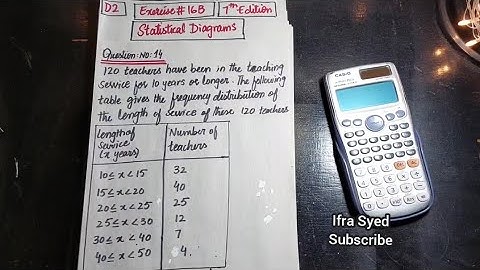 D2
Exercise # 16B
7th Edition
Statistical Diagrams
Question: No: 14
120 teachers have been in the teaching
service for 10 years or longer. The following
table gives the frequency distribution of
the length of service of these 120 teachers
length of service (x years)
Number of teachers
10 ≤ x < 15 32
15 ≤ x < 20 40
20 ≤ x < 25 25
25 ≤ x < 30 12
30 ≤ x < 40 7
40 ≤ x < 50 4
CASIO
Ifra Syed
Subscribe